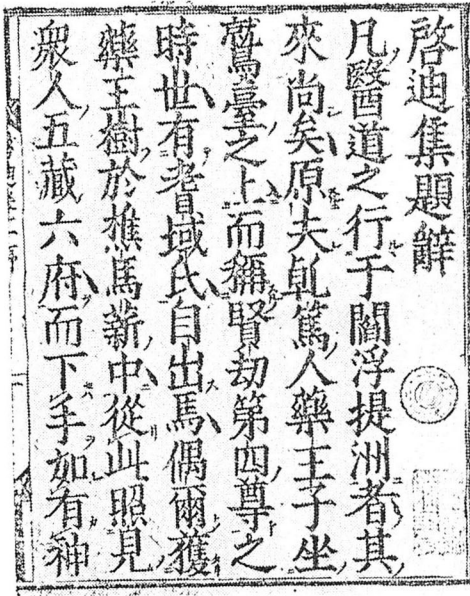 啓迪集題辭
凡醫道之行于閻浮提洲者其
來尚矣原夫乹篤人藥王子坐
鷲臺之上而穪賢劫第四尊之
時世有耆域氏自出焉偶爾獲
藥王樹於樵馬薪中從此照見
衆人五藏六府而下手如有神